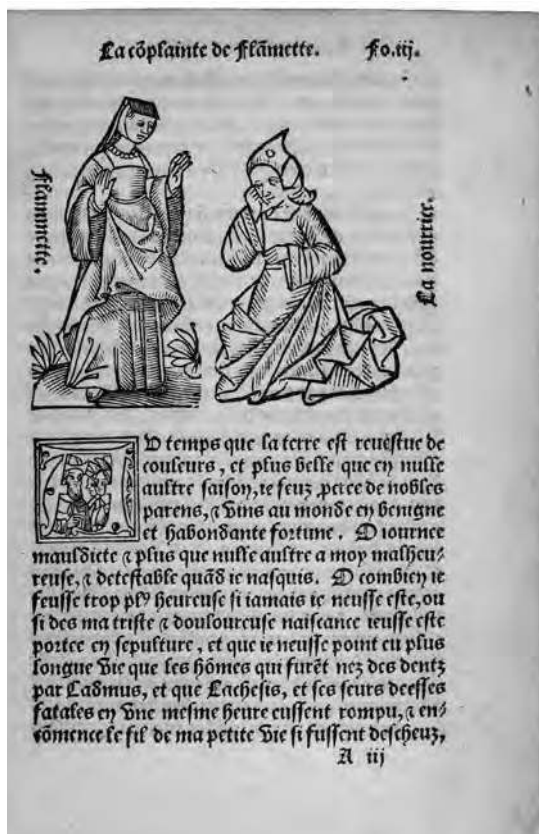 La cõplainte de Flãmette. Fo.iij.
Flammette.
La nourrier.
AU temps que la terre est reuestue de
couleurs, et plus belle que en nulle
aultre saison, ie feuz percee de nobles
parens, ⁊ vins au monde en benigne
et habondante fortune. O iournee
mauldicte ⁊ plus que nulle aultre a moy malheu⸗
reuse, ⁊ detestable quãd ie nasquis. O combien ie
feusse trop plꝰ heureuse si iamais ie neusse este, ou
si des ma triste ⁊ douloureuse naiscance ieusse este
portee en sepulture, et que ie neusse point eu plus
longue vie que les hõmes qui furẽt nez des dentz
par Cadmus, et que Lachesis, et ses seurs deesses
fatales en vne mesme heure eussent rompu, ⁊ en⸗
cõmence le fil de ma petite vie si fussent descheuz,
A iij